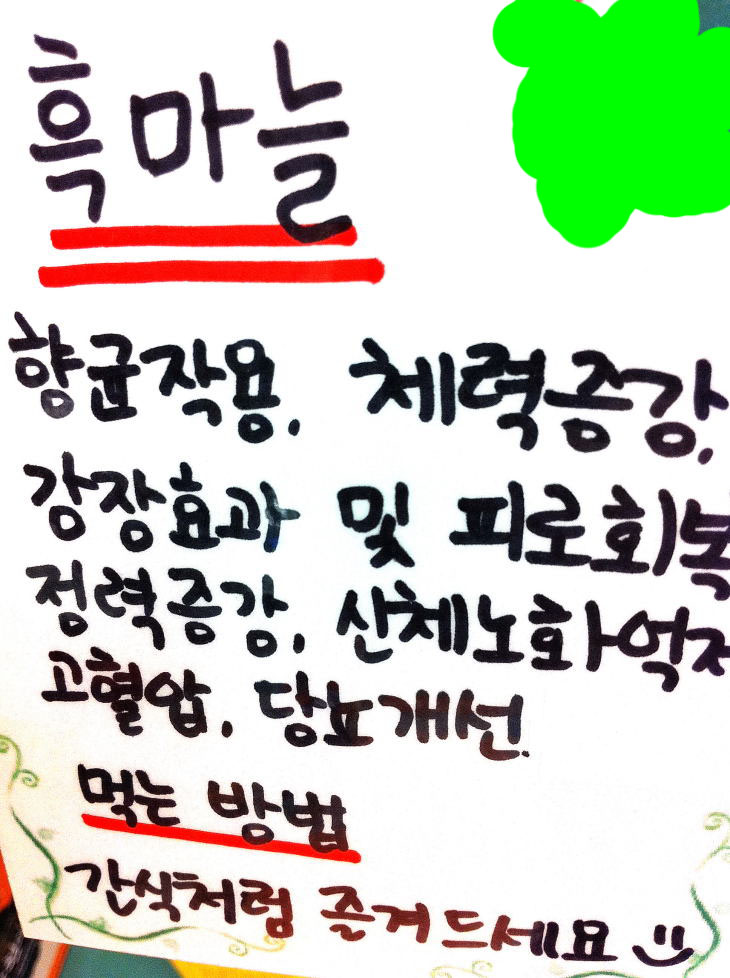 흑마늘
향균작용, 체력증강,
강장효과 및 피로회복
정력증강, 산체노화억
고혈압, 당뇨개선.
먹는 방법
간식처럼 즐겨드세요